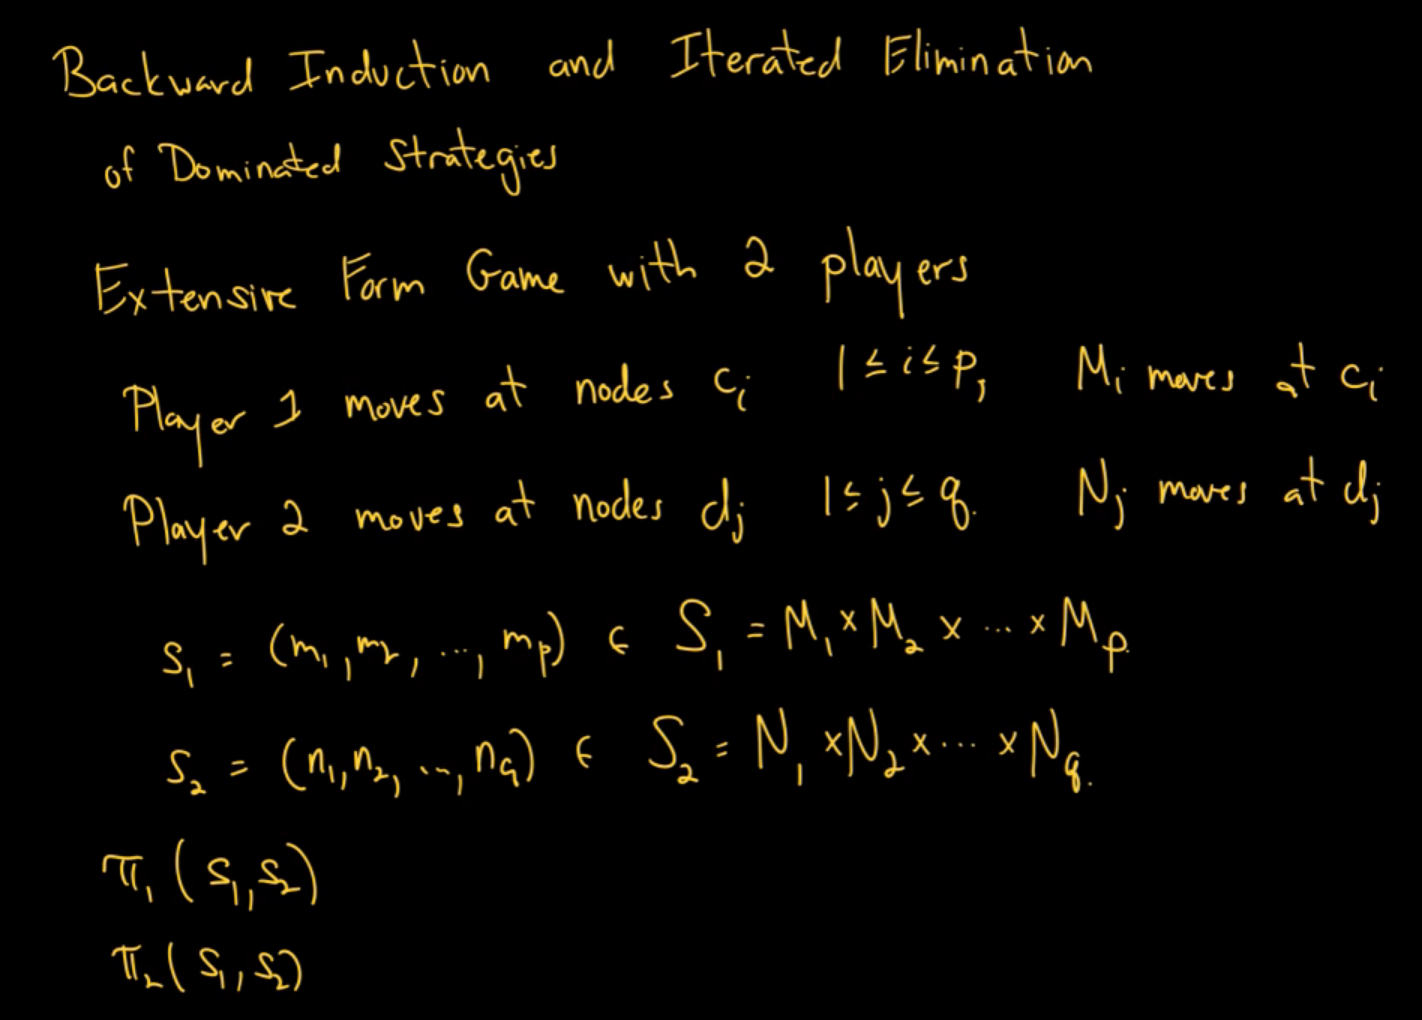 Backward Induction and Iterated Elimination
of Dominated Strategies
Extensive Form Game with 2 players
Player 1 moves at nodes cᵢ 1 ≤ i ≤ p, Mᵢ moves at cᵢ
Player 2 moves at nodes dⱼ 1 ≤ j ≤ q. Nⱼ moves at dⱼ
s₁ = (m₁, m₂, ..., mₚ) ∈ S₁ = M₁ × M₂ × ... × Mₚ.
s₂ = (n₁, n₂, ..., n_q) ∈ S₂ = N₁ × N₂ × ... × N_q.
π₁ (s₁, s₂)
π₂ (s₁, s₂)